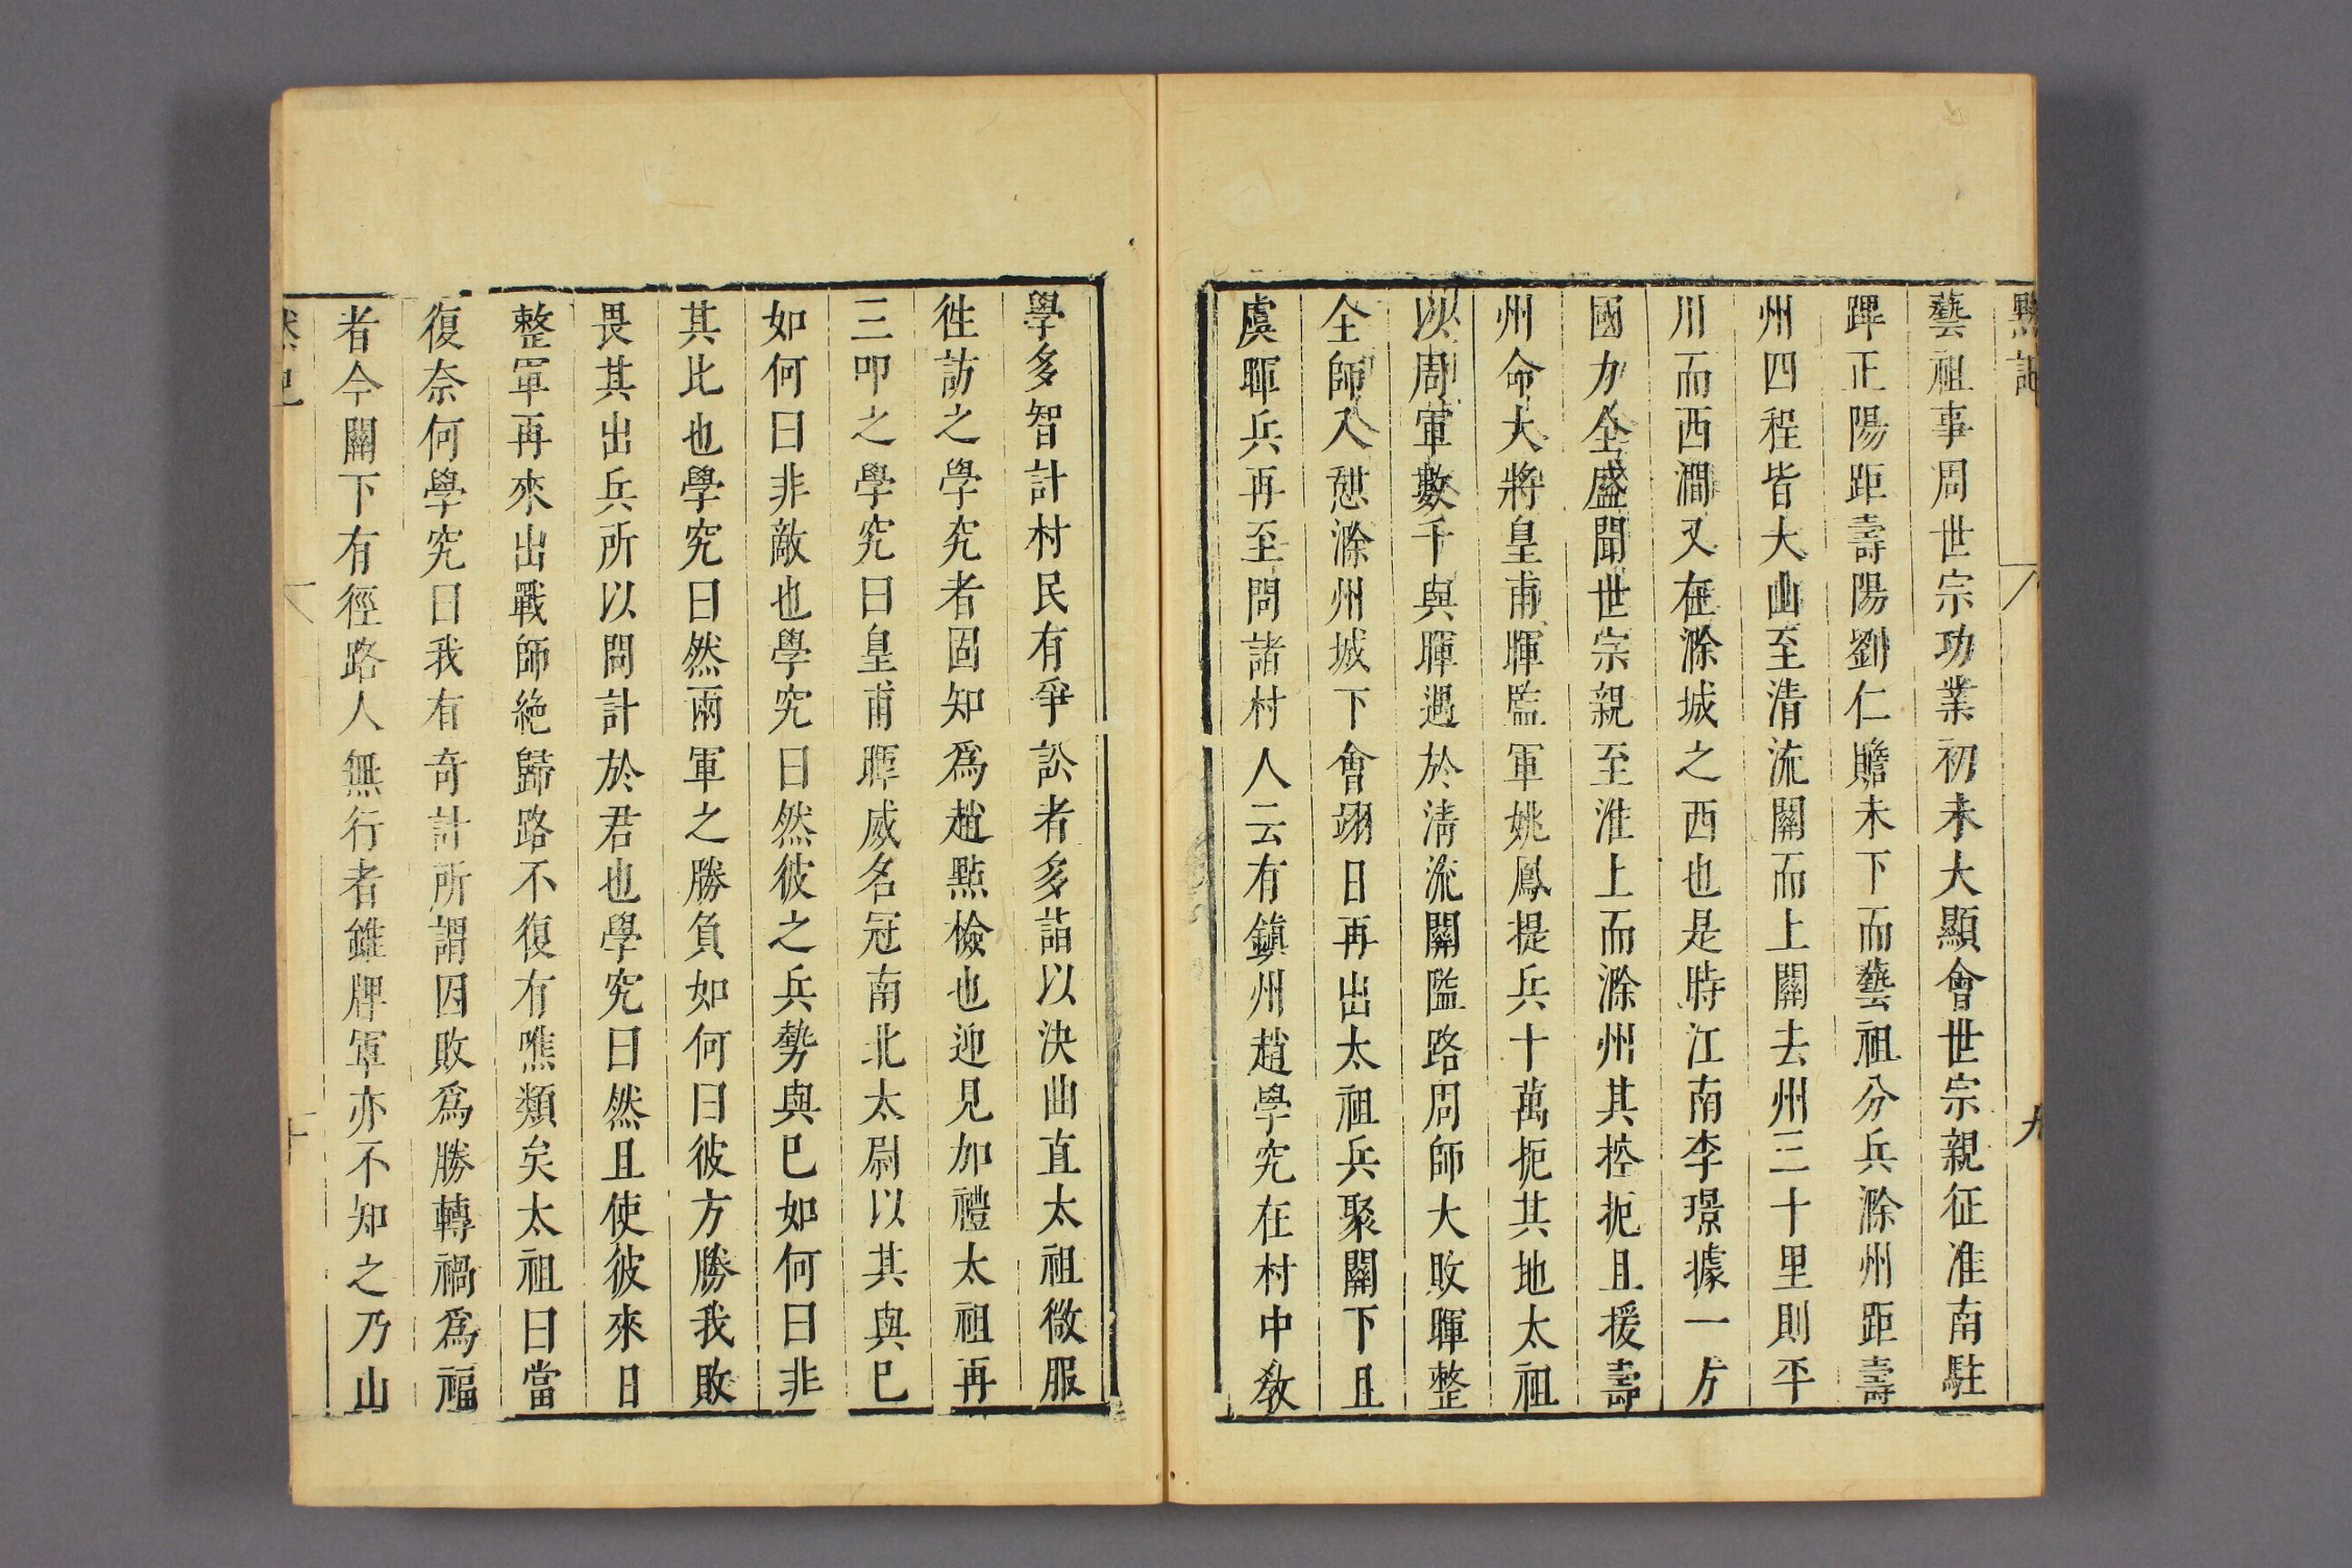 默記
九
藝祖事周世宗功業初未大顯會世宗親征淮南駐
蹕正陽距壽陽劉仁贍未下而藝祖分兵滁州距壽
州四程皆大山至清流關而上關去州三十里則平
川而西澗又在滁城之西也是時江南李璟據一方
國力全盛聞世宗親至淮上而滁州其控扼且援壽
州命大將皇甫暉監軍姚鳳提兵十萬扼其地太祖
以周軍數千與暉遇於清流關隘路周師大敗暉整
全師入憇滁州城下會翊日再出太祖兵聚關下且
虞暉兵再至問諸村人云有鎮州趙學究在村中教
學多智計村民有爭訟者多詣以決曲直太祖微服
徃訪之學究者固知爲趙點檢也迎見加禮太祖再
三叩之學究曰皇甫暉威名冠南北太尉以其與巳
如何曰非敵也學究曰然彼之兵勢與巳如何曰非
其比也學究曰然兩軍之勝負如何曰彼方勝我敗
畏其出兵所以問計於君也學究曰然且使彼來日
整軍再來出戰師絶歸路不復有噍類矣太祖曰當
復奈何學究曰我有奇計所謂因敗爲勝轉禍爲福
者今關下有徑路人無行者雖牌軍亦不知之乃山
十